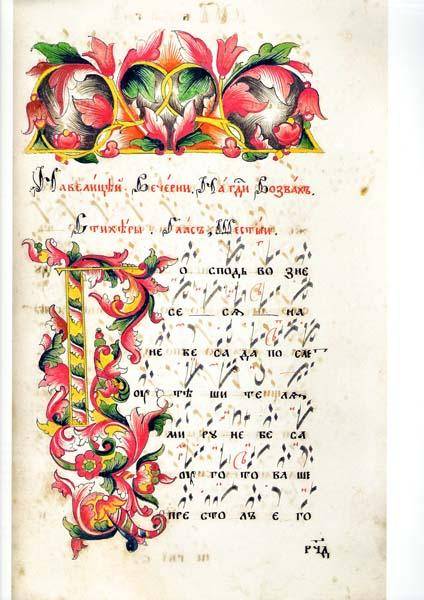 На велицѣй. Вечерни. На гд҇и Возвахъ.
Стихѣры. Гласъ, Шестыи.
Го сподь во зне
се ся на
не бе са да по сле
оу тѣ ши те ля
ми ру не бе са
оу го то ва ше
пре столъ е го
рчд